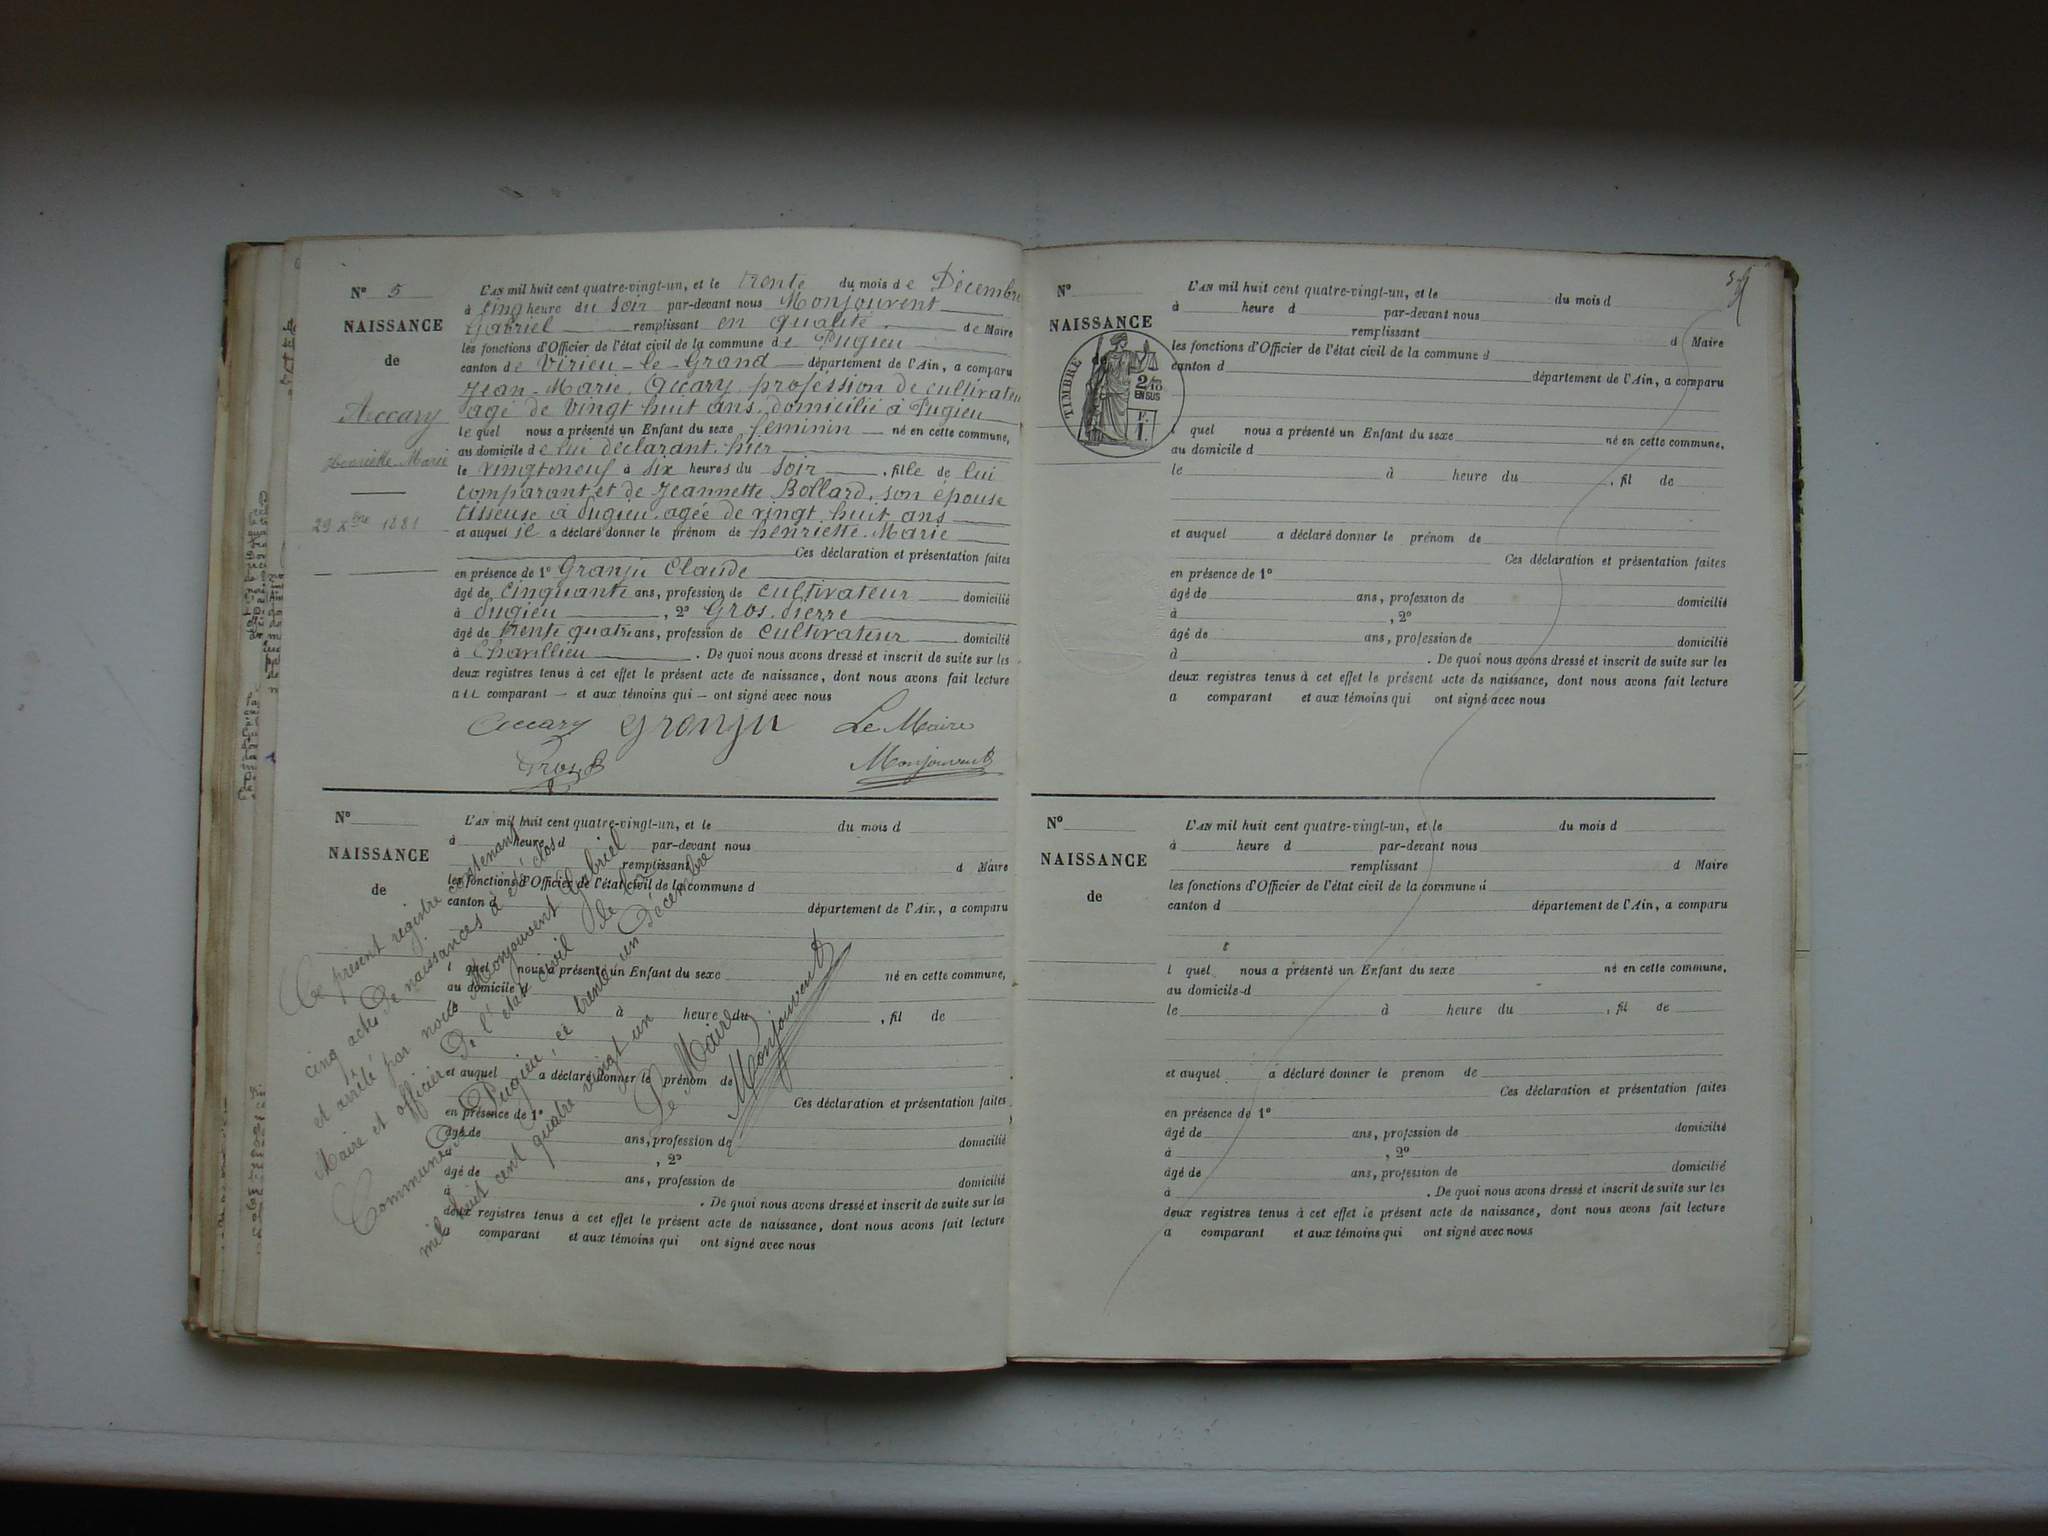 N° 5
NAISSANCE
de
Accary
Henriette Marie
29 Xbre 1881
L'AN mil huit cent quatre-vingt-un, et le trente du mois de Décembre
à cinq heure du soir par-devant nous Monjouvent
Gabriel remplissant en qualité de Maire
les fonctions d'Officier de l'état civil de la commune de Pugieu
canton de Virieu-le-Grand département de l'Ain, a comparu
Jean-Marie, Accary, profession de cultivateur
agé de vingt huit ans, domicilié à Pugieu
lequel nous a présenté un Enfant du sexe feminin né en cette commune,
au domicile de lui déclarant, hier
le vingt neuf à six heures du soir, fille de lui
comparant et de Jeannette Bollard, son épouse
tisseuse à Pugieu, agée de vingt huit ans
et auquel il a déclaré donner le prénom de henriette Marie
Ces déclaration et présentation faites
en présence de 1° Granju Claude
âgé de cinquante ans, profession de cultivateur domicilié
à Pugieu, 2° Gros, Pierre
âgé de trente quatre ans, profession de cultivateur domicilié
à Chavillieu. De quoi nous avons dressé et inscrit de suite sur les
deux registres tenus à cet effet le présent acte de naissance, dont nous avons fait lecture
au comparant — et aux témoins qui — ont signé avec nous
Accary Granju Le Maire
Gros P Monjouvent
N°
NAISSANCE
de
L'AN mil huit cent quatre-vingt-un, et le du mois d
à heure d par-devant nous
remplissant d Maire
les fonctions d'Officier de l'état civil de la commune d
canton d département de l'Ain, a comparu
l quel nous a présenté un Enfant du sexe né en cette commune,
au domicile d
à heure du , fil de
et auquel a déclaré donner le prénom de
Ces déclaration et présentation faites
en présence de 1°
âgé de ans, profession de domicilié
à , 2°
âgé de ans, profession de domicilié
à . De quoi nous avons dressé et inscrit de suite sur les
deux registres tenus à cet effet le présent acte de naissance, dont nous avons fait lecture
comparant et aux témoins qui ont signé avec nous
Ce présent registre contenant
cinq actes de naissances à été clos
et arrêté par nous Monjouvent Gabriel
Maire et officier de l'état civil de la
Commune de Pugieu, ce trente un Décembre
mil huit cent quatre vingt un
Le Maire
Monjouvent
N°
NAISSANCE
TIMBRE
2/10
EN SUS
F.
1.
L'AN mil huit cent quatre-vingt-un, et le du mois d
à heure d par-devant nous
remplissant d Maire
les fonctions d'Officier de l'état civil de la commune d
canton d département de l'Ain, a comparu
l quel nous a présenté un Enfant du sexe né en cette commune,
au domicile d
le à heure du , fil de
et auquel a déclaré donner le prénom de
Ces déclaration et présentation faites
en présence de 1°
âgé de ans, profession de domicilié
à , 2°
âgé de ans, profession de domicilié
à . De quoi nous avons dressé et inscrit de suite sur les
deux registres tenus à cet effet le présent acte de naissance, dont nous avons fait lecture
a comparant et aux témoins qui ont signé avec nous
N°
NAISSANCE
de
L'AN mil huit cent quatre-vingt-un, et le du mois d
à heure d par-devant nous
remplissant d Maire
les fonctions d'Officier de l'état civil de la commune d
canton d département de l'Ain, a comparu
l quel nous a présenté un Enfant du sexe né en cette commune,
au domicile d
le à heure du , fil de
et auquel a déclaré donner le prenom de
Ces déclaration et présentation faites
en présence de 1°
âgé de ans, profession de domicilié
à , 2°
âgé de ans, profession de domicilié
à . De quoi nous avons dressé et inscrit de suite sur les
deux registres tenus à cet effet le présent acte de naissance, dont nous avons fait lecture
a comparant et aux témoins qui ont signé avec nous